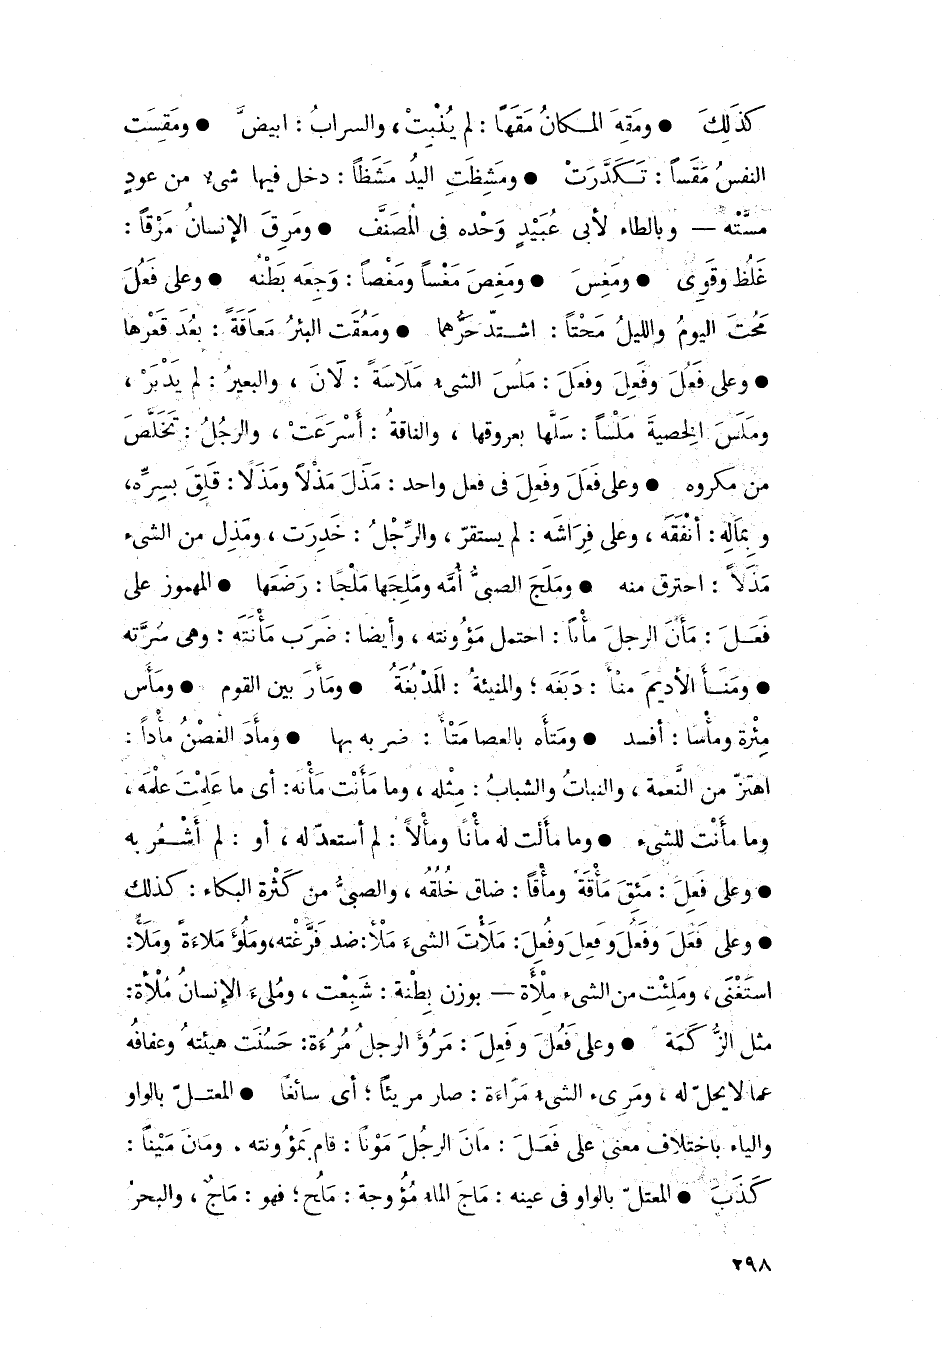 كذَلِكَ ● ومَقِهَ المكانُ مَقَهًا : لم يُنْبِتْ، والسرابُ : ابيضَّ ● ومَقِسَت
النفسُ مَقَساً : تَكَدَّرَتْ ● ومَشِظَتِ اليدُ مَشَظاً : دخل فيها شىء من عودٍ
مسَّتْه — وبالطاء لأبى عُبَيْدٍ وَحْده فى المُصَنَّف ● ومَرِقَ الإنسانُ مَزْقاً :
غَلُظ وقَوِى ● ومَغِسَ ● ومَغِصَ مَغْساً ومَغْصاً : وَجِعَه بَطْنُه ● وعلى فَعُلَ
مَحُتَ اليومُ والليلُ مَحْتاً : اشتدّ حَرُّهما ● ومَعُقَت البئرُ مَعَاقَةً : بعُدَ قَعْرها
● وعلى فَعُلَ وفَعِلَ وفَعَلَ : مَلُسَ الشىء مَلَاسَةً : لَانَ ، والبعيرُ : لم يَدْبَرْ ،
ومَلَسَ الخِصيةَ مَلْساً : سَلَّها بعروقها ، والناقةُ : أَسْرَعَتْ ، والرجُلُ : تَخَلَّصَ
من مكروه ● وعلى فَعَلَ وفَعِلَ فى فعل واحد : مَذَلَ مَذْلاً ومَذَلًا : قَلِقَ بسِرِّه،
وبِمَالِه : أنْفَقَه ، وعلى فِرَاشَه : لم يستقرّ ، والرِّجْلُ : خَدِرَت ، ومَذِل من الشىء
مَذَلاً : احترق منه ● ومَلَجَ الصبىُّ أُمَّه ومَلِجَها مَلْجًا : رَضَعَها ● المهموز على
فَعَلَ : مَأَنَ الرجلَ مأْناً : احتمل مَؤُونته ، وأيضا : ضَرَب مَأْنَتَه : وهى سُرَّته
● ومَنَأ الأديمَ منْأً : دَبَغَه ؛ والمنيئةُ : المَدْبُغَةُ ● ومأرَ بين القوم ● ومَأَس
مِئْرة ومأْسا : أفسد ● ومَتأه بالعصا مَتْأً : ضربه بها ● ومأَدَ الغصْنُ مأْداً :
اهتزّ من النَّعمة ، والنباتُ والشبابُ : مِثْله ، وما مَأَنْت مَأْنَه: أى ما عَلِمْتَ عِلْمَه ،
وما مأَنْت للشىء ● وما مأَلت له مأْنًا ومألاً : لم أستعدّ له ، أو : لم أَشْعُر به
● وعلى فَعِلَ : مَئِقَ مَأْقَةً ومأَقاً : ضاق خُلُقُه ، والصبىُّ من كَثْرة البكاء : كذلك
● وعلى فَعَلَ وفَعُلَ وفَعِلَ وفُعِلَ: مَلَأْتَ الشىءَ مَلْأً:ضد فَرَّغْته،ومَلُؤَ مَلَاءَةً ومَلَأً:
استَغْنَى ، ومَلِئْت من الشىء مِلْأَة — بوزن بِطْنة : شَبِعْت ، ومُلِىءَ الإنسانُ مُلْأة:
مثل الزُّكْمَة ● وعلى فَعُلَ وفَعِلَ : مَرُؤَ الرجلُ مُرُءَة: حَسُنَت هيئتهُ وعفافُه
عما لا يحلّ له ، ومَرِىء الشىء مَرَاءَة : صار مريئاً ؛ أى سائغًا ● المعتلّ بالواو
والياء باختلاف معنى على فَعَلَ : مَانَ الرجُلَ مَوْناً : قام بمَؤُونته . ومَانَ مَيْناً :
كَذَبَ ● المعتلّ بالواو فى عينه : مَاجَ الماء مُؤُوجة : مَلُح ؛ فهو : مَاجٌ ، والبحرُ
٢٩٨